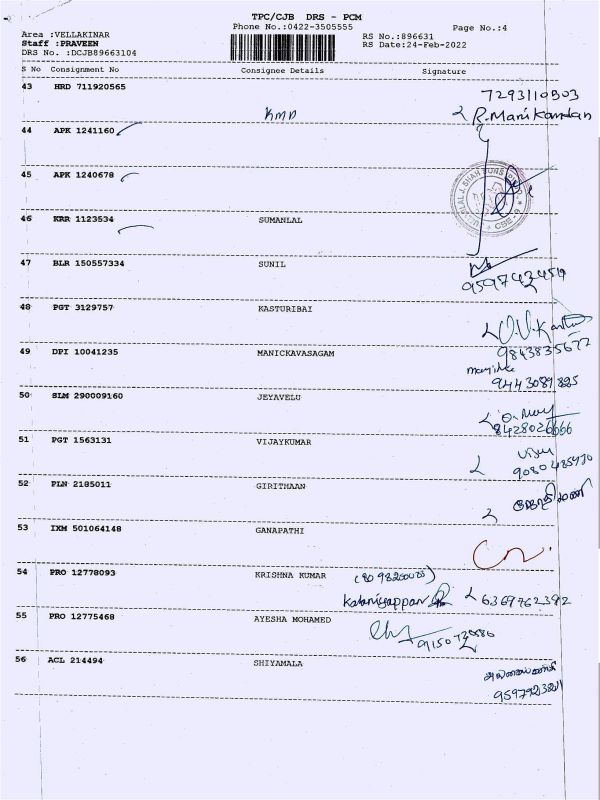 TPC/CJB DRS - PCM
Phone No.:0422-3505555
Page No.:4
Area :VELLAKINAR
Staff :PRAVEEN
DRS No. :DCJB89663104
RS No.:896631
RS Date:24-Feb-2022
S No Consignment No Consignee Details Signature
43 HRD 711920565
KMD
7293110903
R. Manikandan
44 APK 1241160
45 APK 1240678
46 KRR 1123534 SUMANLAL
47 BLR 150557334 SUNIL
9597432454
48 PGT 3129757 KASTURIBAI
9843835677
49 DPI 10041235 MANICKAVASAGAM
9443089825
50 SLM 290009160 JEYAVELU
8428026666
51 PGT 1563131 VIJAYKUMAR
Vijay
9080485970
52 PLN 2185011 GIRITHAAN
53 IXM 501064148 GANAPATHI
54 PRO 12778093 KRISHNA KUMAR
Kalaniyappan 6369762392
55 PRO 12775468 AYESHA MOHAMED
56 ACL 214494 SHIYAMALA